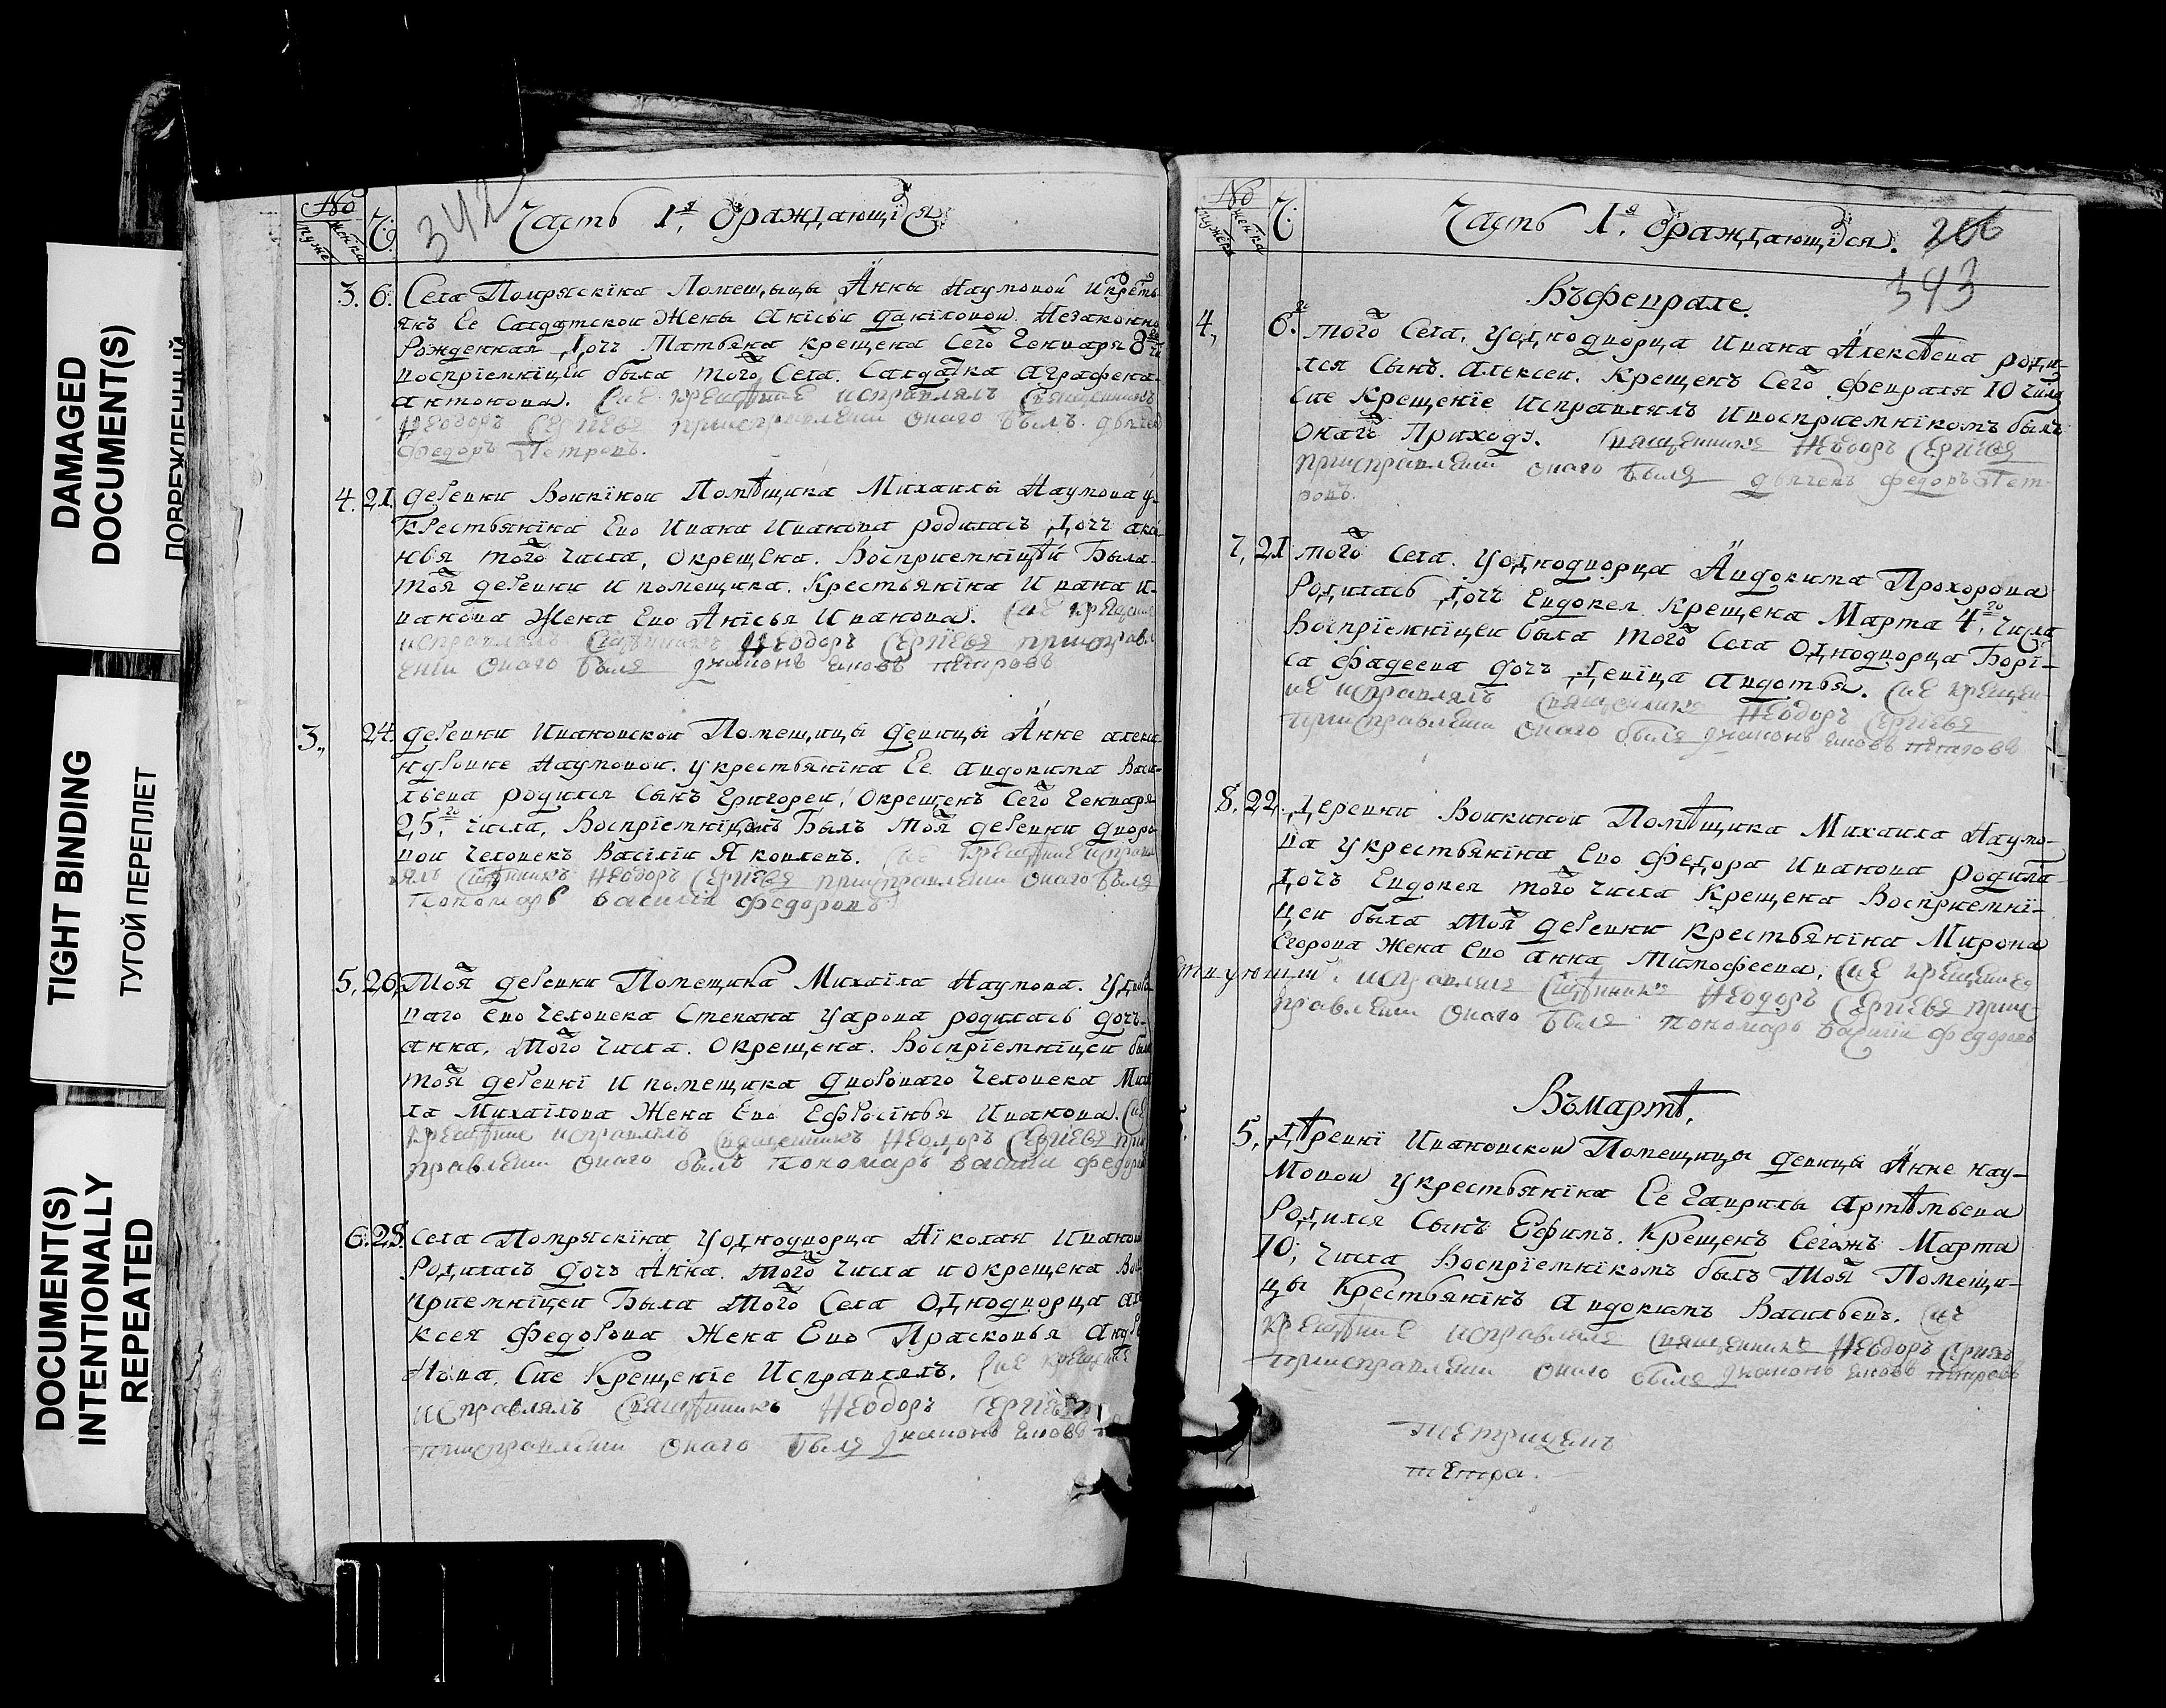 DAMAGED
DOCUMENT(S)
ПОВРЕЖДЕННЫЙ
TIGHT BINDING
ТУГОЙ ПЕРЕПЛЕТ
DOCUMENT(S)
INTENTIONALLY
REPEATED
№
Ч.
342
Часть 1я ораждающїся
3. 6. Села Помряскіна Помещицы Анны Наумовой
янъ Ее Салдатской Жены Анісьи Данїловой Незаконно
Рожденная дочь Матьяна крещена Сего Генваря 8го
воспріемніцей была того Села. Салдатка Аграфена
Антонова. Сие крещение исправлялъ Священникъ
Феодоръ Сергиевъ присправлении онаго былъ дьячек
Федоръ Петровъ.
4. 21. деревни Воикіной Помѣщика Михаилы Наумова у
крестьянїна Ево Ивана Иванова родилась дочь
того числа, окрещена. Восприемніцей Была
тоя деревни и помещика. Крестьянїна Ивана И-
ванова Жена Ево Анісья Иванова. Сие крещение
исправлялъ Священникъ Феодоръ Сергїевъ присправл
ении онаго былъ диаконъ Яковъ Петровъ
3. 24. деревни Ивановской Помещицы девицы Анне Алекса
ндровне Наумовой. у крестьянїна Ее Авдокима Васи-
льева родился сынъ Григореи, Окрещенъ Сего Генваря
25го числа, Воспріемнїкомъ Былъ тоя деревни дворо
вои человекъ Василіи Яковлевъ. Сие крещение исправл
ялъ Священникъ Феодоръ Сергїевъ присправлении онаго былъ
пономарь василїи федоровъ
5. 26. Тоя деревни Помещика Михаїла Наумова. У дворо
ваго ево человека Степана Уарова родилась дочь
анна, того числа. Окрещена. Воспріемнїцеи была
тоя деревнї и помещика дворовага человека Миха
ла Михаілова Жена Ево Ефросїнья Иванова. Сие
крещение исправлялъ Священникъ Феодоръ Сергїевъ при
правлении онаго былъ пономарь василии федоров
6. 28. Села Помряскіна У однодворца Нїколая Иванов
Родилась дочь Анна. того числа и окрещена Вос
приемнїцеи Была того Села Однодворца Але
ксея Федорова Жена Ево Прасковья Андре
Сие Крещенїе Исправлялъ. Сие крещение
исправлялъ Священникъ Феодоръ Сергїевъ
присправлении онаго былъ диаконъ Яковъ
№
Ч.
Часть 1я ораждающїся.
266
343
Въ феврале.
4, 6го того Села. У однодворца Ивана Алексѣева роди-
лся Сынъ. Алексеи. Крещенъ Сего февраля 10 числа
сие Крещенїе Исправлялъ Ивосприемнїкомъ былъ
онагъ Приходу. Священникъ Феодоръ Сергїевъ
присправлении онаго былъ дьячекъ федоръ Пет-
ровъ.
7, 21 того Села. У однодворца Авдокима Прохорова
Родилась дочь Евдокея Крещена Марта 4го числа
Воспріемнїцеи была того Села Однодворца Борї-
са Фадеева дочь девїца Авдотья. Сие крещен-
ие исправлялъ Священникъ Феодоръ Сергїевъ
присправлении онаго былъ диаконъ Яковъ Петровъ
8. 22. деревни Воикиной Помѣщика Михаила Наумо-
ва У крестьянїна Ево Федора Иванова родила
дочь Евдокея того числа Крещена Восприемнї-
цеи была тоя деревни крестьянїна Мирона
Егорова жена ево Анна Тимофеева. Сие крещение
исправлялъ Священникъ Феодоръ Сергїевъ прис
правлении онаго былъ пономарь Василии федоровъ
Въ мартѣ.
5, деревнї Ивановской Помещицы девицы Анне Нау-
мовой У крестьянїна Ее Гаврилы Артѣмьева
Родился Сынъ Ефимъ. Крещенъ Сегожъ Марта
10, числа Воспрїемнїкомъ былъ тоя Помещи-
цы Крестьянїнъ Авдокимъ Васильевъ. Сие
крещение исправлялъ Священникъ Феодоръ Сергиевъ
присправлении онаго былъ диаконъ Яковъ Петровъ